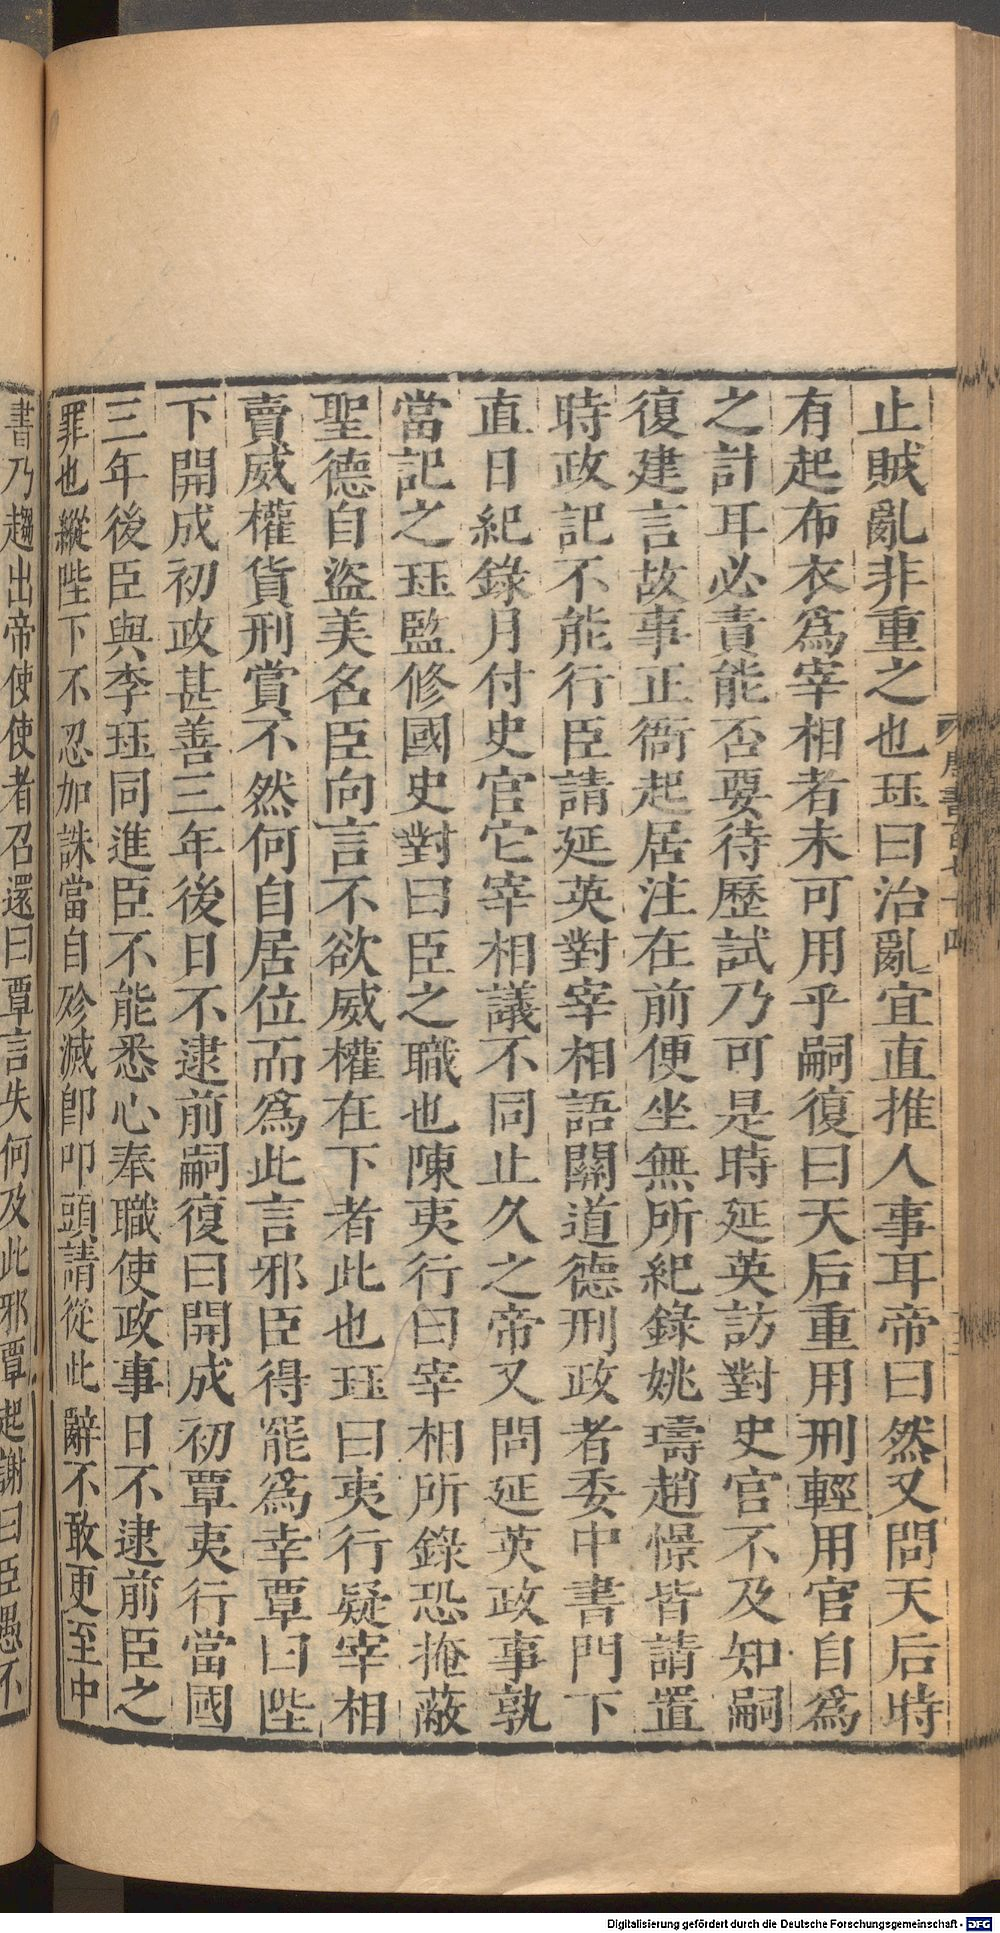 止賊亂非重之也珏曰治亂宜直推人事耳帝曰然又問天后時
有起布衣爲宰相者未可用乎嗣復曰天后重用刑輕用官自爲
之計耳必責能否要待歷試乃可是時延英訪對史官不及知嗣
復建言故事正衙起居注在前便坐無所紀錄姚璹趙憬皆請置
時政記不能行臣請延英對宰相語關道德刑政者委中書門下
直日紀錄月付史官它宰相議不同止久之帝又問延英政事孰
當記之珏監修國史對曰臣之職也陳夷行曰宰相所錄恐掩蔽
聖德自盜美名臣向言不欲威權在下者此也珏曰夷行疑宰相
賣威權貨刑賞不然何自居位而爲此言邪臣得罷爲幸覃曰陛
下開成初政甚善三年後日不逮前嗣復曰開成初覃夷行當國
三年後臣與李珏同進臣不能悉心奉職使政事日不逮前臣之
罪也縱陛下不忍加誅當自殄滅卽叩頭請從此辭不敢更至中
書乃趨出帝使使者召還曰覃言失何及此邪覃起謝曰臣愚不
Digitalisierung gefördert durch die Deutsche Forschungsgemeinschaft - DFG